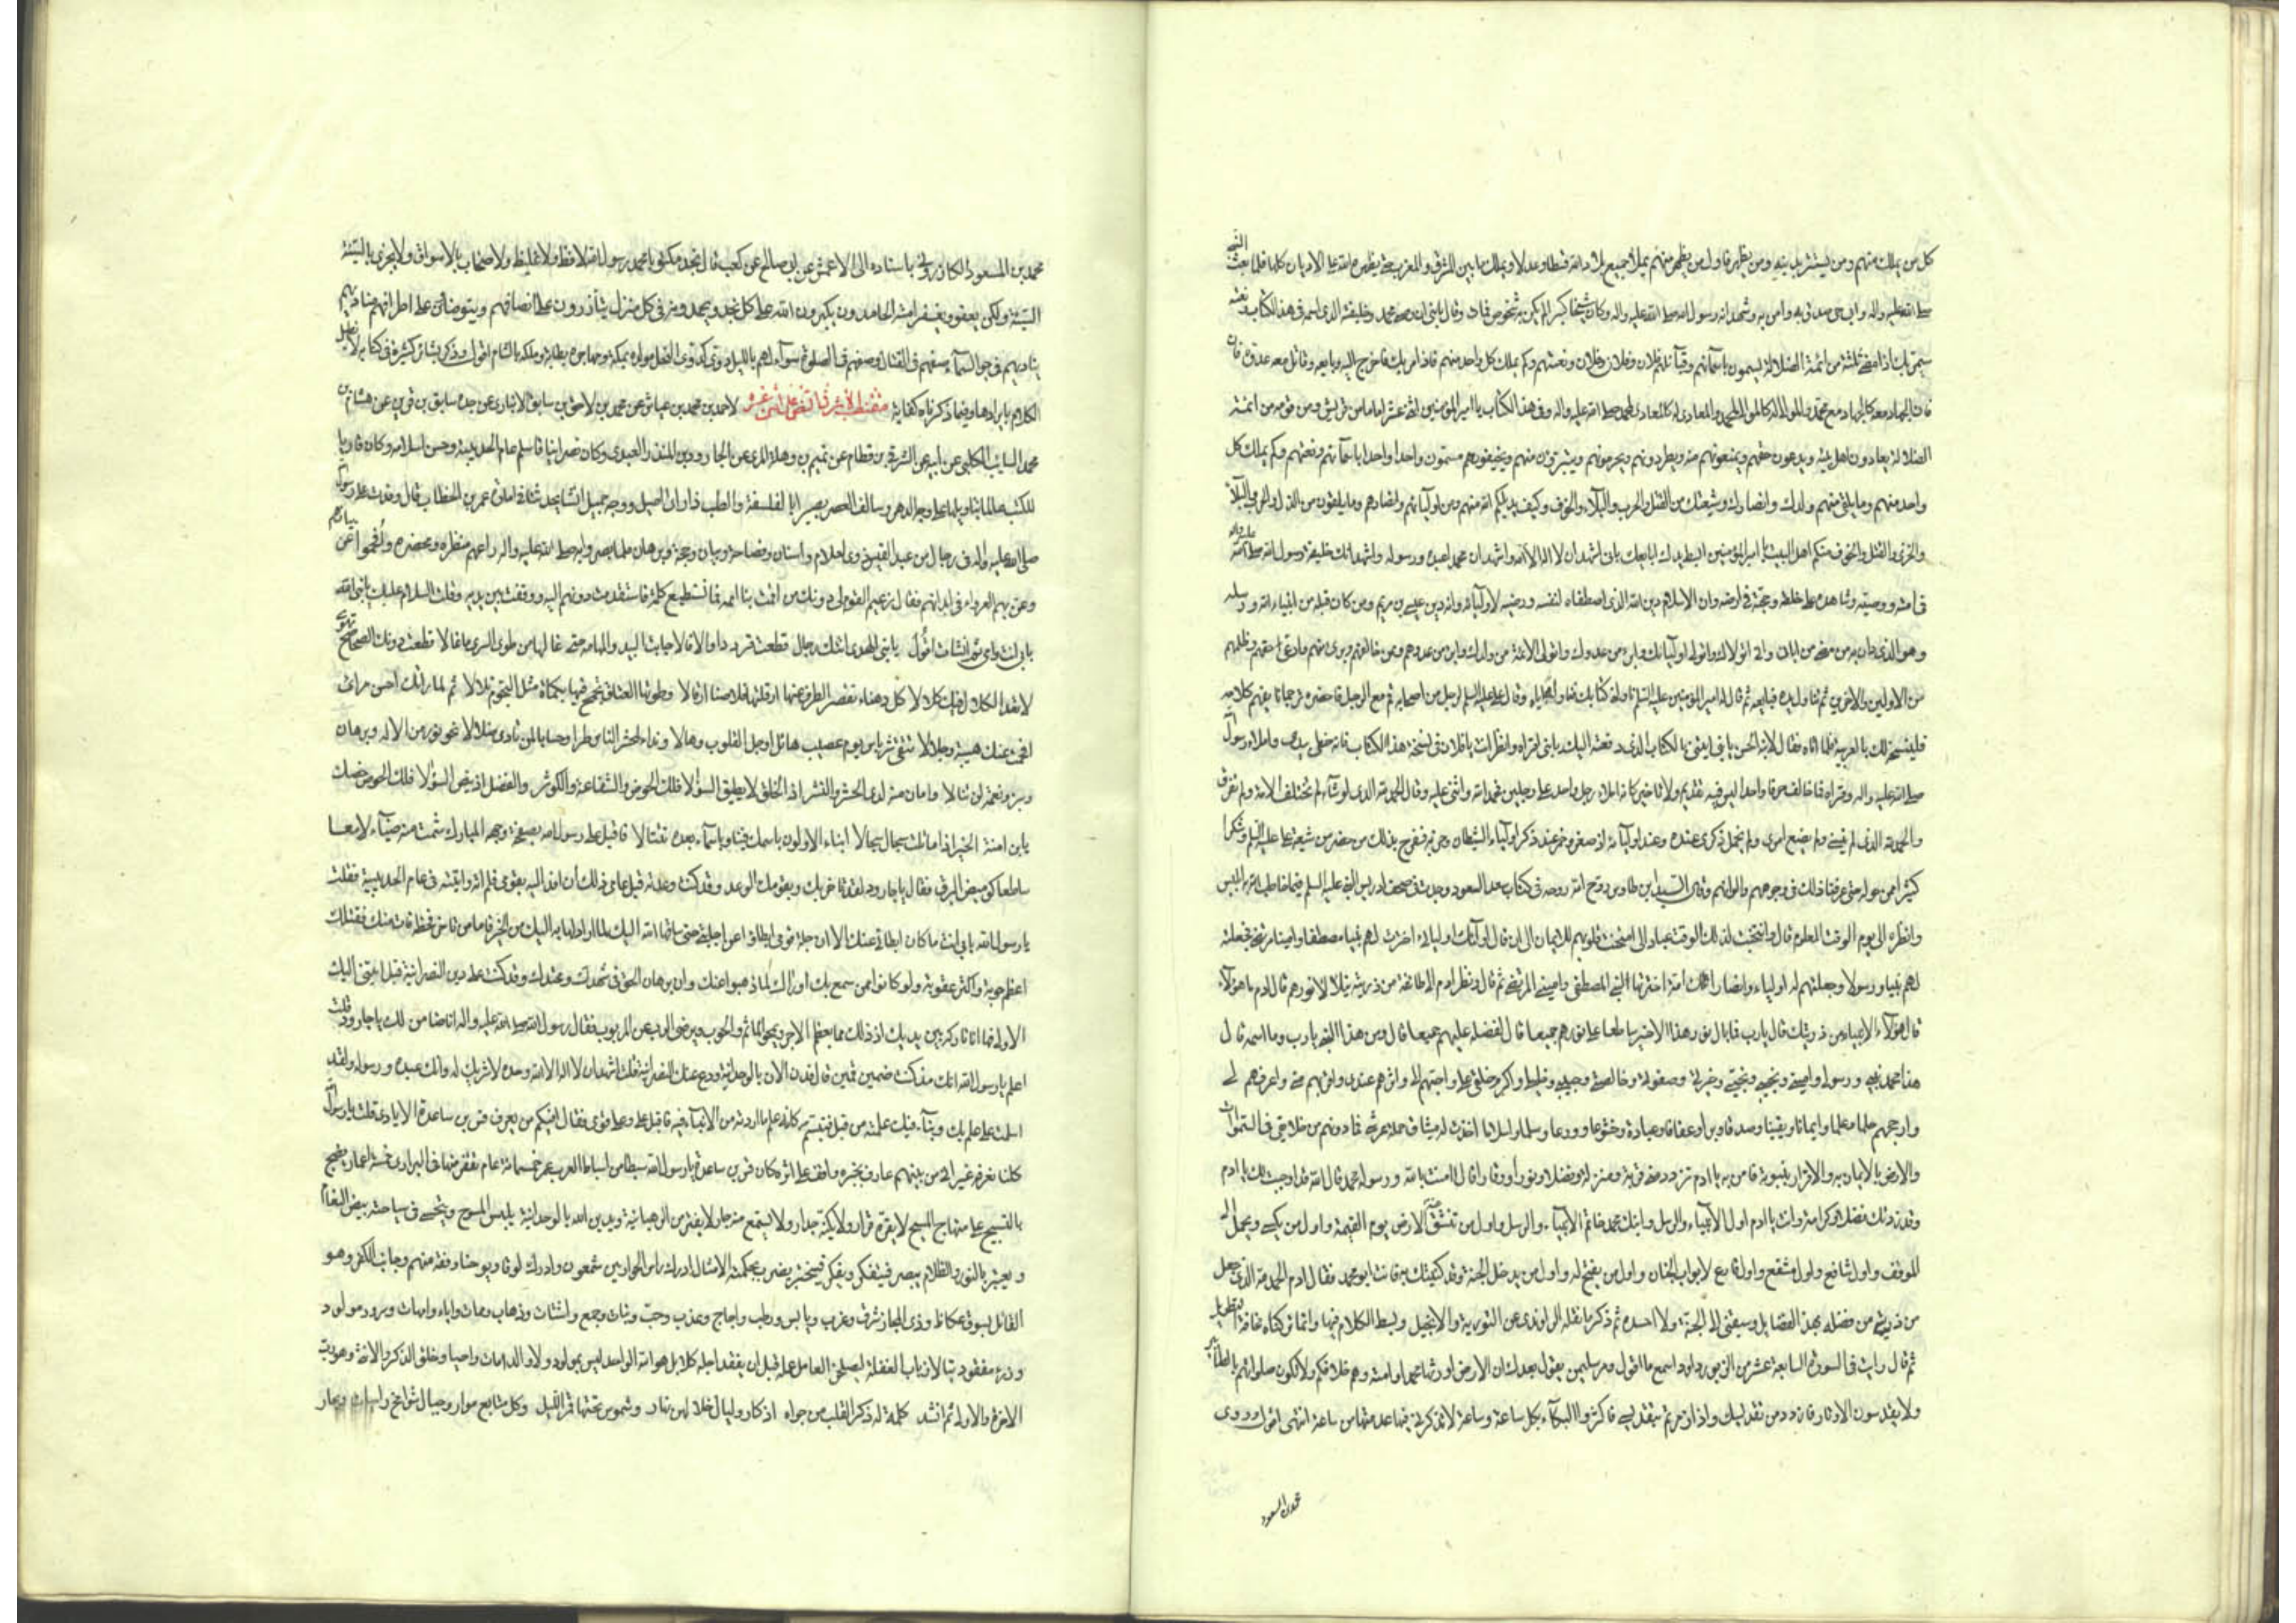 كل من يملك منهم ومن يستتر بدينه ومن يظهر فاول من يظهر منهم يملأ جميع بلاد الله قسطا وعدلا ويملك ما بين المشرق والمغرب حتى يظهره الله على الاديان كلها فلما بعث النبي
صلى الله عليه واله وابي حي صدق به وامن به وشهد انه رسول الله صلى الله عليه واله وكان شيخا كبيرا لم يكن به شخوص فمات وقال يا بني ان وصي محمد وخليفته الذي اسمه في هذا الكتاب ونعته
سيمر بك اذا مضى ثلثة من ائمة الضلالة يسمون باسمائهم وقبائلهم فلان وفلان وفلان ونعتهم وكم يملك كل واحد منهم فاذا مر بك فاخرج اليه وبايعه وقاتل معه عدوه فان
فان الجهاد معه كالجهاد مع محمد والموالي له كالموالي لمحمد والمعادي له كالمعادي لمحمد صلى الله عليه واله وفي هذا الكتاب يا امير المؤمنين اثنى عشر اماما من قريش ومن قومه من ائمة
الضلالة يعادون اهل بيته ويدعون حقهم ويمنعونهم منه ويطردونهم ويحرمونهم ويتبرؤن منهم ويخيفونهم مسمون واحدا واحدا باسمائهم ونعتهم وكم يملك كل
واحد منهم وما يلقى منهم ولدك وانصارك وشيعتك من القتل والحرب والبلاء والخوف وكيف يديلكم الله منهم ومن اوليائهم وانصارهم وما يلقون من الذل والحرب والبلاء
والخزي والقتل والخوف منكم اهل البيت يا امير المؤمنين ابسط يدك ابايعك باني اشهد ان لا اله الا الله واشهد ان محمدا عبده ورسوله واشهد انك خليفة رسول الله صلى الله عليه واله
في امته ووصيه وشاهده على خلقه وحجته في ارضه وان الاسلام دين الله الذي اصطفاه لنفسه ورضيه لاوليائه وانه دين عيسى بن مريم ومن كان قبله من انبياء الله ورسله
وهو الذي دان به من مضى من ابائي واني اتولاك واتولى اوليائك وابرء من عدوك واتولى الائمة من ولدك وابرء من عدوهم وممن خالفهم وبرئ منهم وادعى حقهم وظلمهم
من الاولين والاخرين ثم تناول يده فبايعه ثم قال له امير المؤمنين عليه السلم ناولني كتابك فناوله اياه وقال علي عليه السلم لرجل من اصحابه قم مع الرجل فاحضر ترجمانا يفهم كلامه
فلينسخه لك بالعربية فلما اتاه فقال لابنه الحسن يا بني ايتني بالكتاب الذي دفعته اليك يا بني اقراه وانظر انت يا فلان في نسخة هذا الكتاب فانه خطي بيدي واملاء رسول الله
صلى الله عليه واله وقراه فما خالف حرفا واحدا ليس فيه تقديم ولا تاخير كانه املاء رجل واحد على رجلين فحمد الله واثنى عليه وقال الحمد لله الذي لو شاء لم تختلف الامة ولم تفترق
والحمد لله الذي لم ينسني ولم يضيع امري ولم يخمل ذكري عنده وعند اوليائه اذ صغر وخمل عنده ذكر اولياء الشيطان وحزبه ففرح بذلك من حضر من شيعة علي عليه السلم وشكرا
كثير ممن حوله حتى عرفنا ذلك في وجوههم والوانهم وقال السيد ابن طاوس روح الله روحه في كتاب سعد السعود وجدت في صحف ادريس النبي عليه السلم فيما خاطب الله به ابليس
وانظره الى يوم الوقت المعلوم قال وانتخبت لذلك الوقت عبادا لي امتحنت قلوبهم للايمان الى ان قال اولئك اوليائي اخترت لهم نبيا مصطفى وامينا مرتضى فجعلته
لهم نبيا ورسولا وجعلتهم له اولياء وانصارا تلك امة اخترتها لنبي المصطفى واميني المرتضى ثم قال ونظر ادم الى طائفة من ذريته يتلالا نورهم قال ادم ما هؤلاء
قال هؤلاء الانبياء من ذريتك قال يا رب فما بال نور هذا الاخير ساطعا على نورهم جميعا قال لفضله عليهم جميعا قال ومن هذا النبي يا رب وما اسمه قال
هذا محمد نبيي ورسولي واميني ونجيبي ونجيي وخيرتي وصفوتي وخالصتي وحبيبي وخليلي واكرم خلقي علي واحبهم الي واثرهم عندي واقربهم مني واعرفهم لي
وارجحهم حلما وعلما وايمانا ويقينا وصدقا وبرا وعفافا وعبادة وخشوعا وورعا وسلما واسلاما اخذت له ميثاق حملة عرشي فما دونهم من خلائقي في السموات
والارض بالايمان به والاقرار بنبوته فامن به يا ادم تزدد مني قربة ومنزلة وفضلا ونورا ووقارا قال امنت بالله ورسوله محمد قال الله قد اوجبت لك يا ادم
وقد زدتك فضلا وكرامة وانت يا ادم اول الانبياء والرسل وابنك محمد خاتم الانبياء والرسل واول من تنشق عنه الارض يوم القيمة واول من يكسى ويحمل الى
الموقف واول شافع واول مشفع واول قارع لابواب الجنان واول من يفتح له واول من يدخل الجنة وقد كنيتك به فانت ابو محمد فقال ادم الحمد لله الذي جعل
من ذريتي من فضله بهذه الفضايل وسبقني الى الجنة ولا احسده ثم ذكر ما نقله الراوندي عن التورية والانجيل وبسط الكلام فيها وانما تركناه مخافة التطويل
ثم قال رايت في السورة السابعة عشر من الزبور داود اسمع ما اقول ومر سليمن يقول بعدك ان الارض اورثها محمدا وامته وهم خلافكم ولا تكون صلواتهم بالطنابير
ولا يقدسون الاوتار فازدد من تقديسك واذا زمرتم بتقديسي فاكثروا البكاء بكل ساعة وساعة لا تذكرني فيها عدمتها من ساعة انتهى اقول وروى
محمد بن المسعود
محمد بن المسعود الكازروني باسناده الى الاعمش عن ابي صالح عن كعب قال نجد مكتوبا محمد رسول الله لا فظ ولا غليظ ولا صخاب بالاسواق ولا يجزي بالسيئة
السيئة ولكن يعفو ويغفر امته الحامدون يكبرون الله على كل نجد ويحمدونه في كل منزل يتأزرون على انصافهم ويتوضأون على اطرافهم مناديهم
ينادي بهم في جو السماء صفهم في القتال وصفهم في الصلوة سواء لهم بالليل دوي كدوي النحل مولده بمكة ومهاجره بطابة وملكه بالشام اقول وذكر بشائر كثيرة في كتابه لا نطيل
الكلام بايرادها وفيما ذكرناه كفاية مقتضب الاثر في النص على اثنى عشر لاحمد بن محمد بن عياش عن محمد بن لاحق بن سابق الانباري عن جده سابق بن قرين عن هشام بن
محمد السايب الكلبي عن ابيه عن الشرقي بن قطام عن تميم بن وهلة المري عن الجارود بن المنذر العبدي وكان نصرانيا فاسلم عام الحديبية وحسن اسلامه وكان قاريا
للكتب عالما بتاويلها على وجه الدهر وسالف العصر بصيرا بالفلسفة والطب ذا راى اصيل ووجه جميل انشا يحدثنا في امارة عمر بن الخطاب قال وفدت على رسول الله
صلى الله عليه واله في رجال من عبد القيس ذوي احلام واسنان وفصاحة وبيان وحجة وبرهان فلما بصروا به صلى الله عليه واله راعهم منظره ومحضره وافحموا عن بيانهم
وعن بهم العرواء في ابدانهم فقال زعيم القوم لي دونك من اقمت بنا اممه فما نستطيع كلمه فاستقدمت دونهم اليه ووقفت بين يديه وقلت السلام عليك يا نبي الله
بابي انت وامي ثم انشات اقول يا نبي الهدى اتتك رجال قطعت قرددا والا فالا جابت البيد والمهامه حتى غالها من طوى السرى ما غالا قطعت دونك الصحاصح تهوي
لا تعد الكلال فيك كلالا كل دهناء تقصر الطرف عنها ارقلتها قلاصنا ارقالا وطوتها العتاق تجمح فيها بكماة مثل النجوم تلالا ثم لما راتك احسن مراى
افحمت عنك هيبة وجلالا تتقي شر باس يوم عصيب هائل اوجل القلوب وهالا ونداء لمحشر الناس طرا وحسابا لمن تمادى ضلالا نحو نور من الاله وبرهان
وبر ونعمة لن تنالا وامان منه لدى الحشر والنشر اذ الخلق لا يطيق السؤالا فلك الحوض والشفاعة والكوثر والفضل اذ ينص السؤالا
يا بن امنة الخير اذا ما تلت سجال سجالا انبا الاولون باسمك فينا وباسماء بعده تتتالا فاقبل علي رسول الله بصفحة وجهه المبارك شمت منه ضياء لامعا
ساطعا كوميض البرق فقال يا جارود لقد تاخر بك وبقومك الموعد وقد كنت وعدته قبل عامي ذلك أن افد اليه بقومي فلم اته واتيته في عام الحديبية فقلت
يا رسول الله بابي انت ما كان ابطائي عنك الا ان جلة قومي ابطاوا عن اجابتي حتى ساقها الله اليك لما ارادها به اليك من الخير فاما من تاخر فحظه فات منك فتلك
اعظم حوبة واكثر عقوبة ولو كانوا ممن سمع بك او راك لما ذهبوا عنك وان برهان الحق في مشهدك ومحتدك وقد كنت على دين النصرانية قبل اتيتي اليك
الاولى فها انا تاركه بين يديك اذ ذلك مما يعظم الاجر ويمحو الماثم والحوب ويرضي الرب عن المربوب فقال رسول الله صلى الله عليه واله انا ضامن لك يا جارود قلت
اعلم يا رسول الله انك مذ كنت ضمين قمين قال فدن الان بالوحدانية ودع عنك النصرانية قلت اشهد ان لا اله الا الله وحده لا شريك له وانك عبده ورسوله ولقد
اسلمت على علم بك ونبأ فيك علمته من قبل فتبسم كانه علم ما اردته من الانباء فيه فاقبل علي وعلى قومي فقال افيكم من يعرف قس بن ساعدة الايادي قلت يا رسول الله
كلنا نعرفه غير اني من بينهم عارف بخبره واقف على اثره كان قس بن ساعدة يا رسول الله سبطا من اسباط العرب عمر خمسمائة عام تقفر منها في البراري خمسة اعمار يضج
بالتسبيح على منهاج المسيح لا يقره قرار ولا يكنه جدار ولا يستمتع منه جار لا يفتر من الرهبانية ويدين الله بالوحدانية يلبس المسوح ويتحسى في سياحته بيض النعام
ويعتبر بالنور والظلام يبصر فيتفكر ويفكر فيختبر يضرب بحكمته الامثال ادرك راس الحواريين شمعون وادرك لوقا ويوحنا وفقه منهم وجانب الكفر وهو
القائل بسوق عكاظ وذي المجاز شرق وغرب ويابس ورطب واجاج وعذب وحب ونبات وجمع واشتات وذهاب وممات واباء وامهات وسرور مولود
ورزء مفقود تبا لارباب الغفلة ليصلحن العامل عمله قبل ان يفقد اجله كلا بل هو الله الواحد ليس بمولود ولا والد امات واحيا وخلق الذكر والانثى وهو رب
الاخرة والاولى ثم انشد كلمة له ذكر القلب من جواه اذكار وليال خلالهن نهار وشموس تحتها قمر الليل وكل متابع موار وجبال شوامخ راسيات وبحار